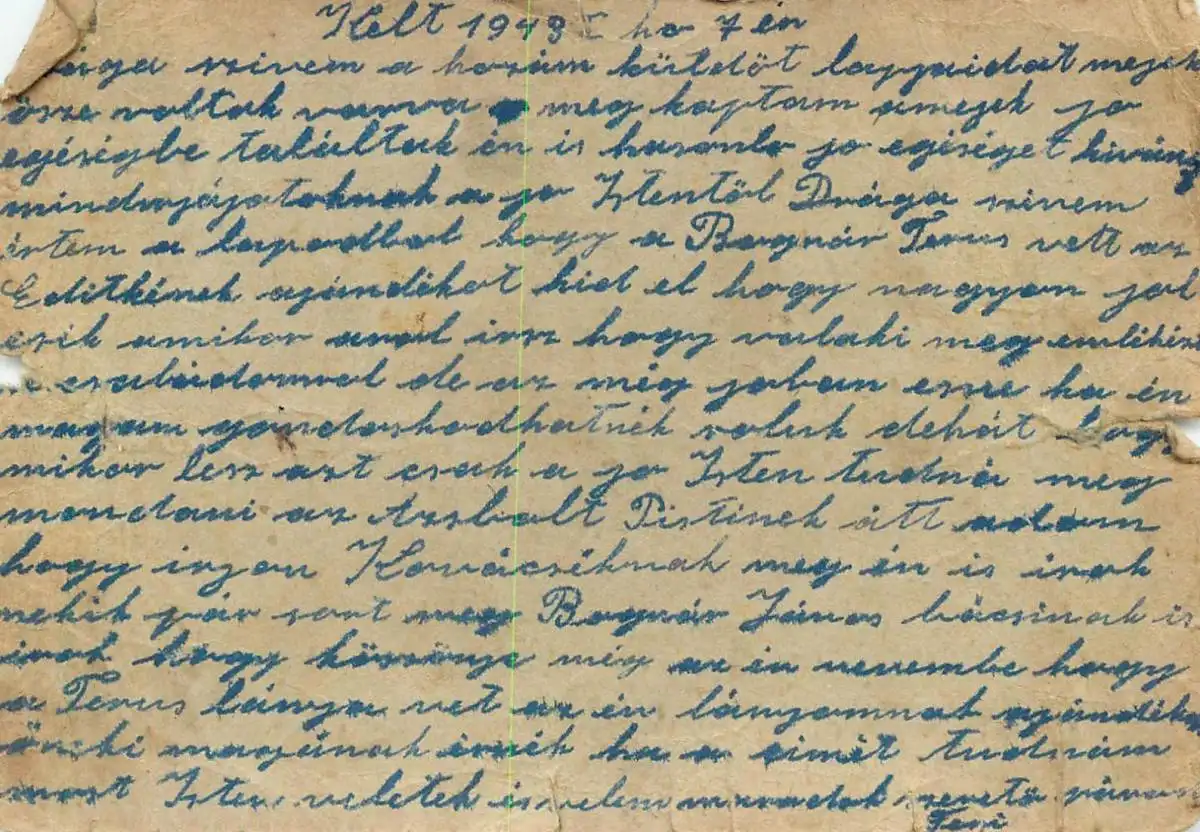 Kelt 1943 I ho 7 én
szivem a hozám küldöt lapjaidat mejek
össze voltak varva meg kaptam amejek jo
egéségbe találtak én is hasonlo jo egéséget kiváno
mindnyájatoknak a jo Istentöl Drága szivem
értem a lapodbol hogy a Bognár Terus vett az
Editkének ajándékot hid el hogy nagyon jol
esik amikor arol irsz hogy valaki meg emlékezi
családomval de az még joban esne ha én
magam gondoskodhatnék roluk dehát hogy
mikor lesz azt csak a jo Isten tudná meg
mondani az Pistinek átt adom
hogy irjon Kovácséknak meg én is irok
nekik pár sort meg Bognár János bácsinak is
irok hogy köszönje még az én nevembe hogy
a Terus lánya vet az én lányomnak ajándéko
irnék ha a cimét tudnám
most Isten veletek és velem maradok szeretö párod
Feri